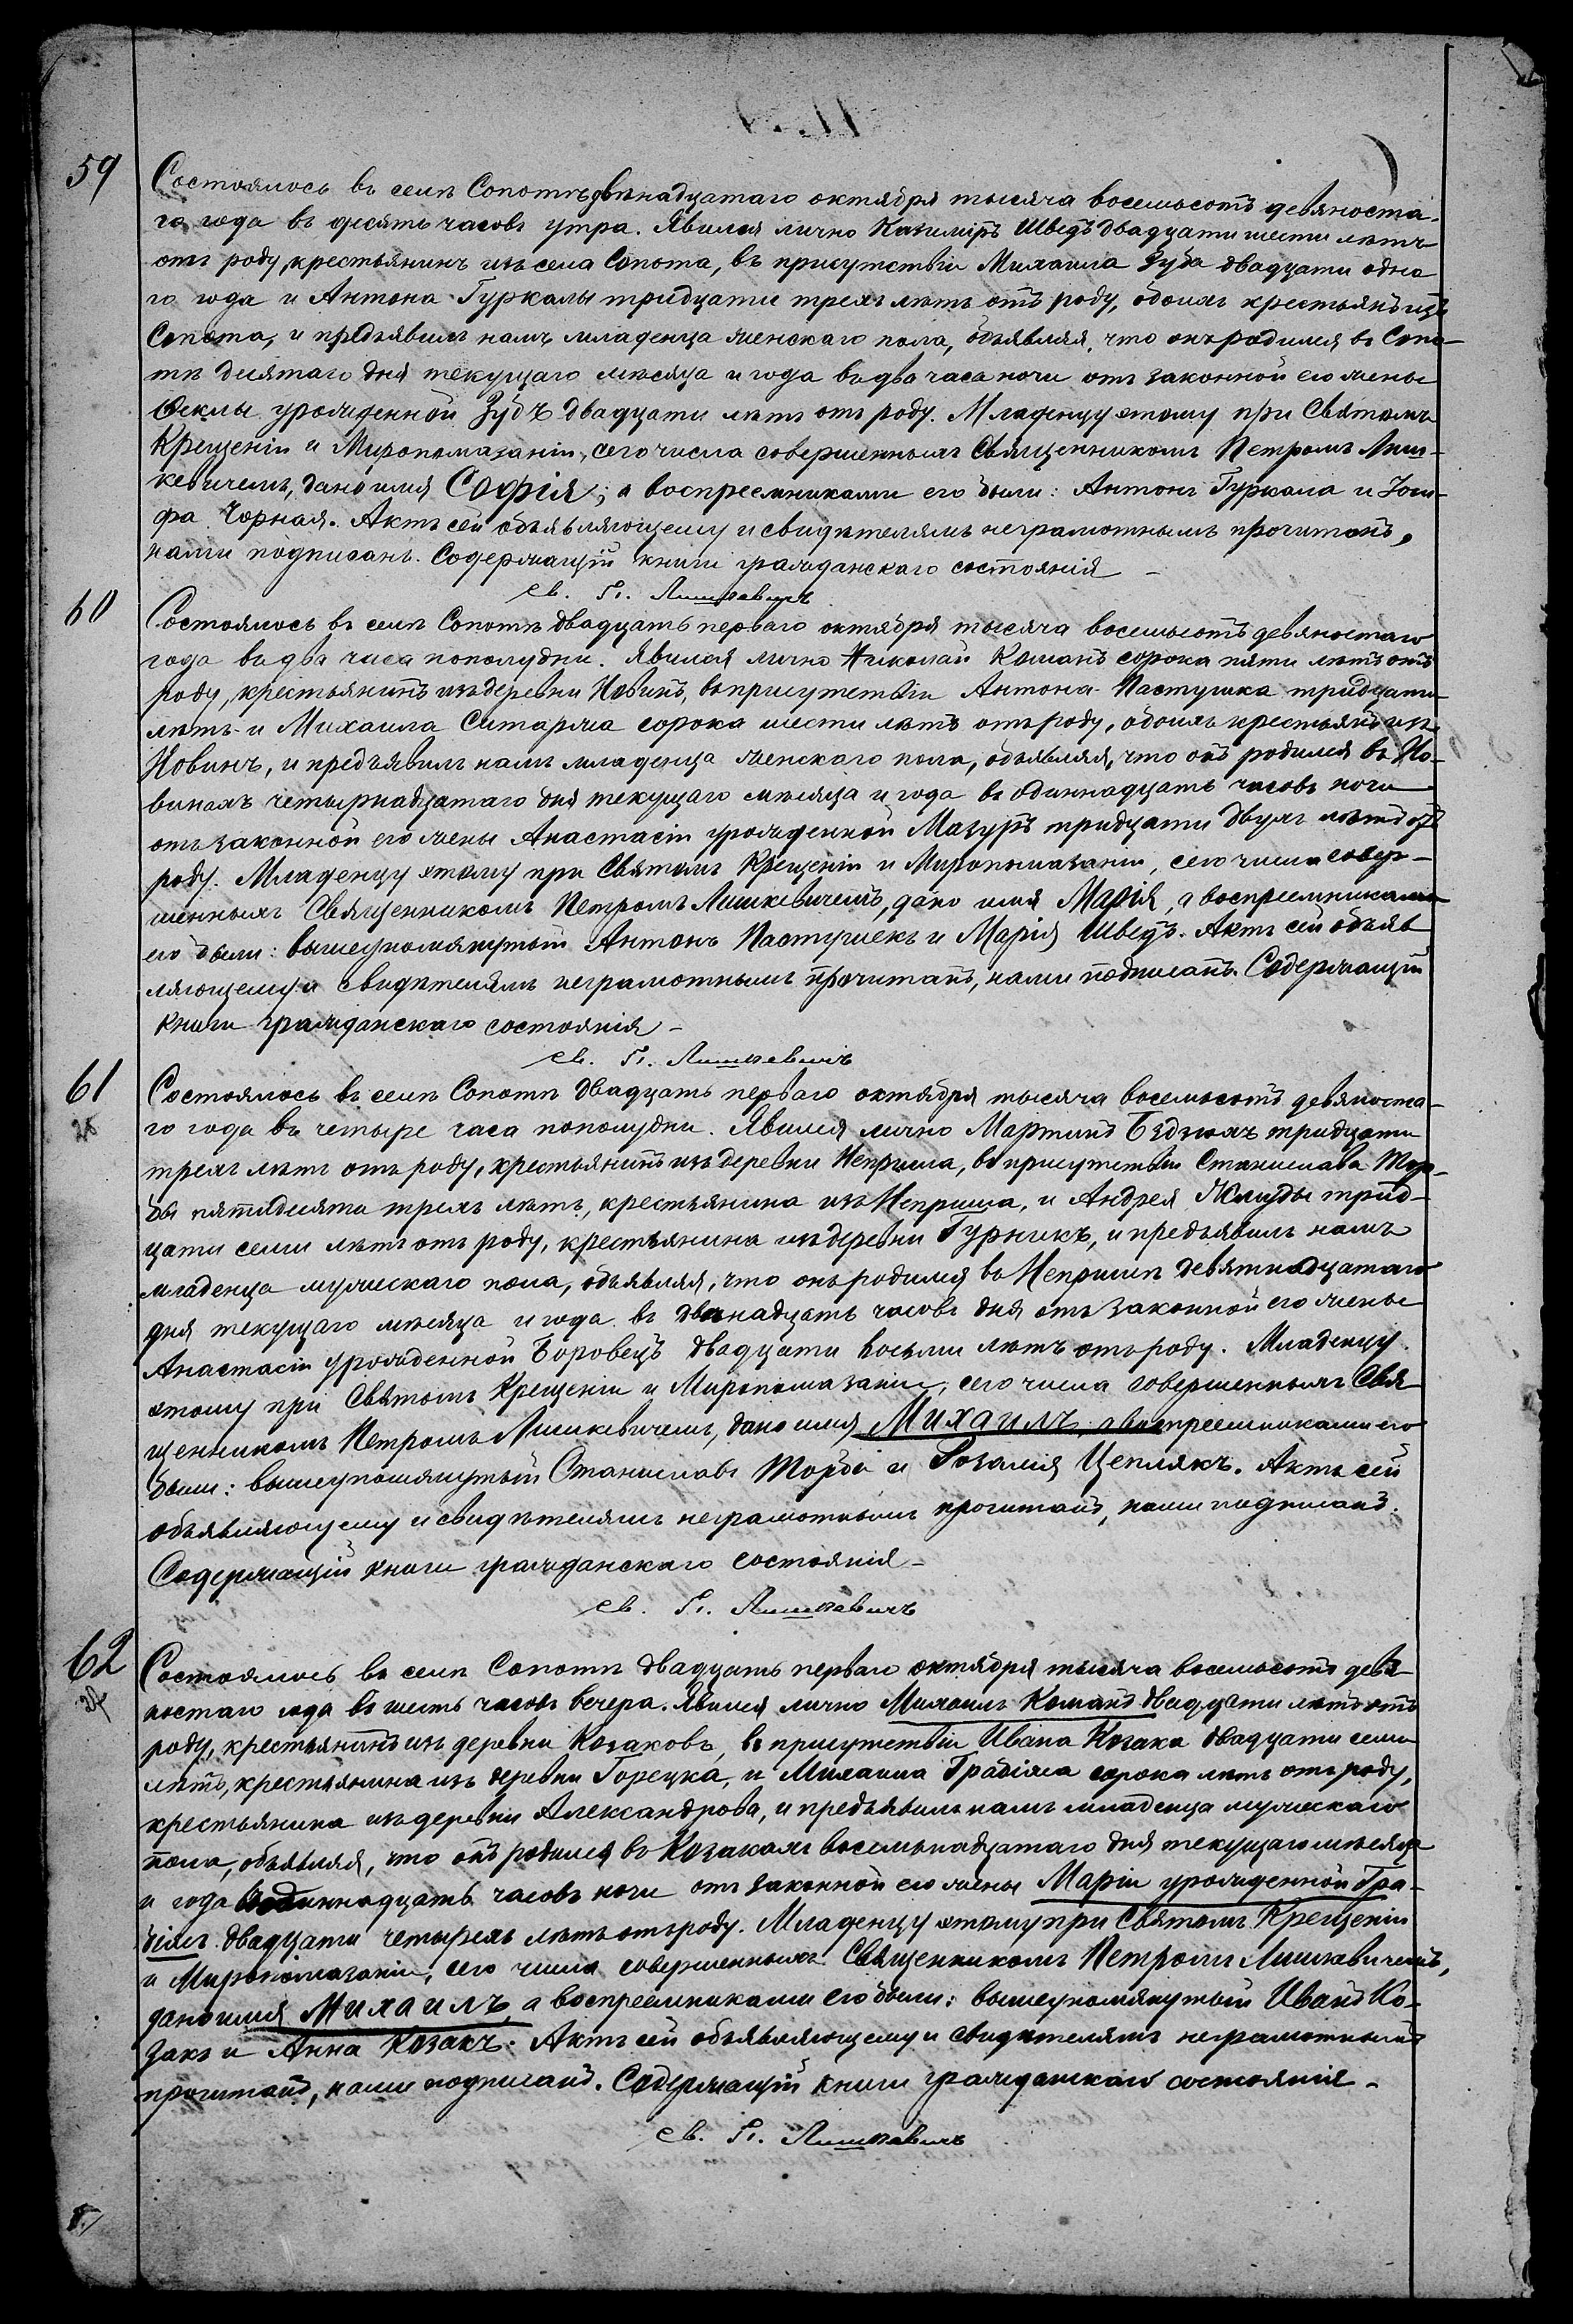 59
Состоялось въ селѣ Сопотѣ двѣнадцатаго октября тысяча восемьсотъ девяноста-
го года въ десять часовъ утра. Явился лично Казимиръ Шведъ двадцати шести лѣтъ
отъ роду, крестьянинъ изъ села Сопота, въ присутствіи Михаила Зуба двадцати одно
го года и Антона Гуркалы тридцати трехъ лѣтъ отъ роду, обоихъ крестьянъ изъ
Сопота, и предъявилъ намъ младенца женскаго пола, объявляя, что онъ родился въ Сопо-
тѣ десятаго дня текущаго мѣсяца и года въ два часа ночи отъ законной его жены
Ѳеклы урожденной Зубъ двадцати лѣтъ отъ роду. Младенцу этому при Святомъ
Крещеніи и Миропомазаніи, сего числа совершенныхъ Священникомъ Петромъ Лиш-
кевичемъ, дано имя Софія; а воспреемниками его были: Антонъ Гуркала и Іози-
фа Чорная. Актъ сей объявляющему и свидѣтелямъ неграмотнымъ прочитанъ,
нами подписанъ. Содержащій книги гражданскаго состоянія
св. П. Лишкевичъ
60
Состоялось въ селѣ Сопотѣ двадцать перваго октября тысяча восемьсотъ девяностаго
года въ два часа пополудни. Явился лично Николай Команъ сорока пяти лѣтъ отъ
роду, крестьянинъ изъ деревни Новинъ, въ присутствіи Антона Пастушка тридцати
лѣтъ и Михаила Ситаржа сорока шести лѣтъ отъ роду, обоихъ крестьянъ изъ
Новинъ, и предъявилъ намъ младенца женскаго пола, объявляя, что онъ родился въ Но-
винахъ четырнадцатаго дня текущаго мѣсяца и года въ одиннадцать часовъ ночи
отъ законной его жены Анастасіи урожденной Мазуръ тридцати двухъ лѣтъ отъ
роду. Младенцу этому при Святомъ Крещеніи и Миропомазаніи, сего числа совер-
шенныхъ Священникомъ Петромъ Лишкевичемъ, дано имя Марія, а воспреемниками
его были: вышеупомянутый Антонъ Пастушекъ и Марія Шведъ. Актъ сей объяв
ляющему и свидѣтелямъ неграмотнымъ прочитанъ, нами подписанъ. Содержащій
книги гражданскаго состоянія
св. П. Лишкевичъ
61
Состоялось въ селѣ Сопотѣ двадцать перваго октября тысяча восемьсотъ девяноста-
го года въ четыре часа пополудни. Явился лично Мартинъ Бздзюхъ тридцати
трехъ лѣтъ отъ роду, крестьянинъ изъ деревни Неприша, въ присутствіи Станислава Тор-
бы пятидесяти трехъ лѣтъ, крестьянина изъ Неприша, и Андрея Жлуды трид-
цати семи лѣтъ отъ роду, крестьянина изъ деревни Гурникъ, и предъявилъ намъ
младенца мужескаго пола, объявляя, что онъ родился въ Непришѣ девятнадцатаго
дня текущаго мѣсяца и года въ двѣнадцать часовъ дня отъ законной его жены
Анастасіи урожденной Боровецъ двадцати восьми лѣтъ отъ роду. Младенцу
этому при Святомъ Крещеніи и Миропомазаніи, сего числа совершенныхъ Свя
щенникомъ Петромъ Лишкевичемъ, дано имя Михаилъ, а воспреемниками его
были: вышеупомянутый Станиславъ Торба и Розалія Цеплякъ. Актъ сей
объявляющему и свидѣтелямъ неграмотнымъ прочитанъ, нами подписанъ.
Содержащій книги гражданскаго состоянія
св. П. Лишкевичъ
62
Состоялось въ селѣ Сопотѣ двадцать перваго октября тысяча восемьсотъ девя
ностаго года въ шесть часовъ вечера. Явился лично Михаилъ Команъ двадцати лѣтъ отъ
роду, крестьянинъ изъ деревни Козаковъ, въ присутствіи Ивана Козака двадцати семи
лѣтъ, крестьянина изъ деревни Горецка, и Михаила Грабіяша сорока лѣтъ отъ роду,
крестьянина изъ деревни Александрова, и предъявилъ намъ младенца мужескаго
пола, объявляя, что онъ родился въ Козакахъ восемьнадцатаго дня текущаго мѣсяца
и года въ одиннадцать часовъ ночи отъ законной его жены Маріи урожденной Гра-
біяшъ двадцати четырехъ лѣтъ отъ роду. Младенцу этому при Святомъ Крещеніи
и Миропомазаніи, сего числа совершенныхъ Священникомъ Петромъ Лишкевичемъ,
дано имя Михаилъ, а воспреемниками его были: вышеупомянутый Иванъ Ко-
закъ и Анна Козакъ. Актъ сей объявляющему и свидѣтелямъ неграмотнымъ
прочитанъ, нами подписанъ. Содержащій книги гражданскаго состоянія
св. П. Лишкевичъ